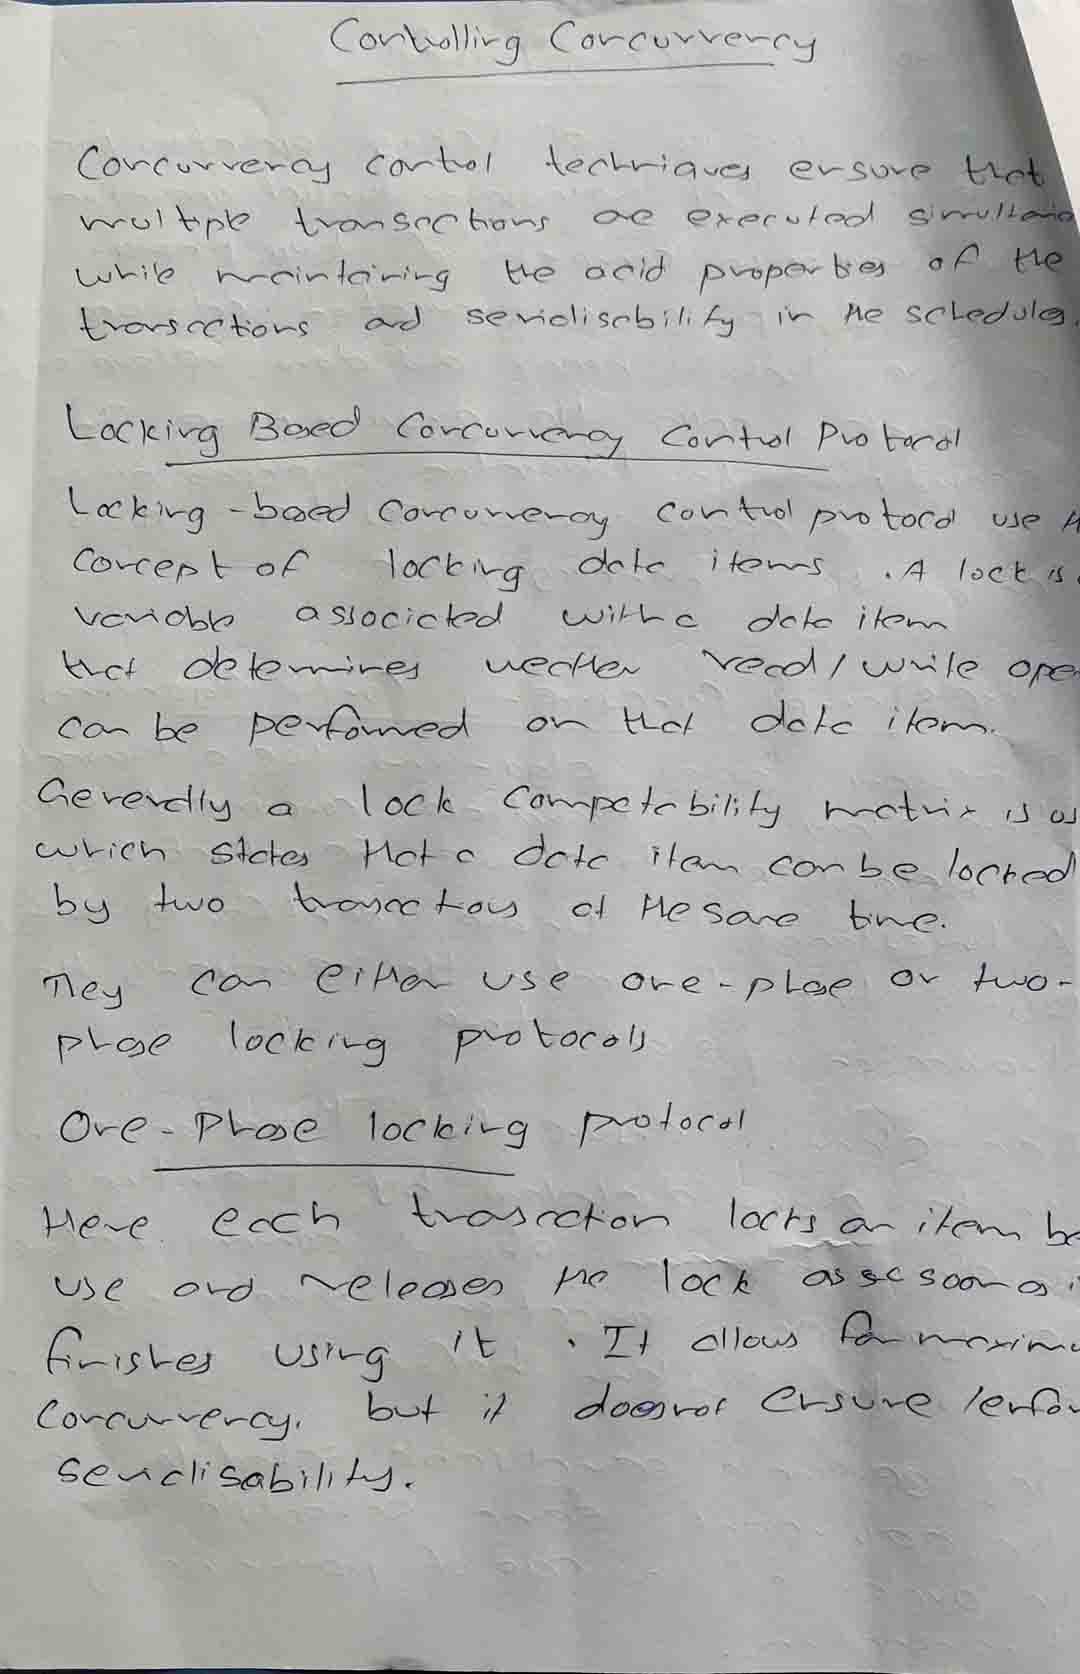 Controlling Concurrency
Concurrency control techniques ensure that
multiple transactions are executed simultaneo
while maintaining the acid properties of the
transactions and serialisability in the schedules.
Locking Based Concurrency Control Protocol
Locking-based concurrency control protocol use
concept of locking data items . A lock is a
variable associated with a data item
that determines wether read/write ope
can be performed on that data item.
Generally a lock compatability matrix is us
which states that a data item can be locked
by two transactions at the same time.
They can either use one-phase or two-
phase locking protocols
One-Phase locking protocol
Here each transaction locks an item be
use and releases the lock as soon as i
finishes using it . It allows for maximu
concurrency. but it does not ensure /enfor
serialisability.